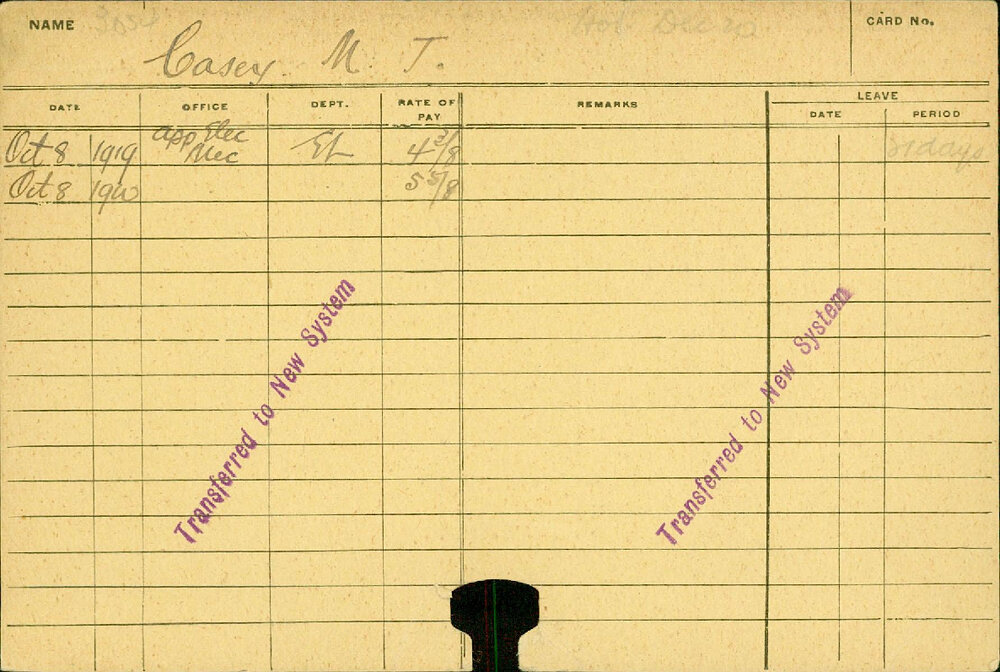 NAME
Casey M. T.
CARD No.
DATE OFFICE DEPT. RATE OF PAY REMARKS LEAVE
DATE PERIOD
Oct 8 1919 App Elec Mec EL 4 3/8 21 days
Oct 8 1920 5 5/8
Transferred to New System
Transferred to New System